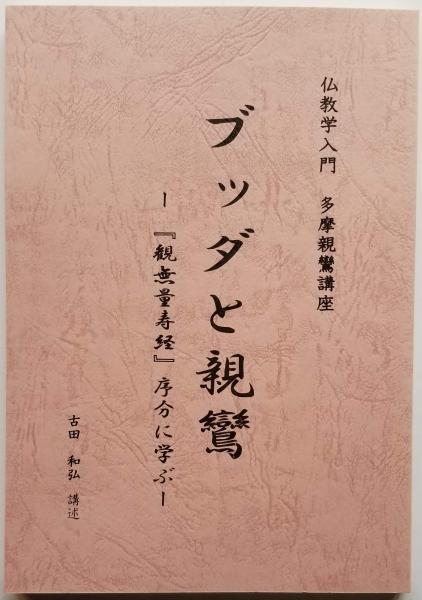 仏教学入門 多摩親鸞講座
ブッダと親鸞
ー『観無量寿経』序分に学ぶー
古田 和弘 講述